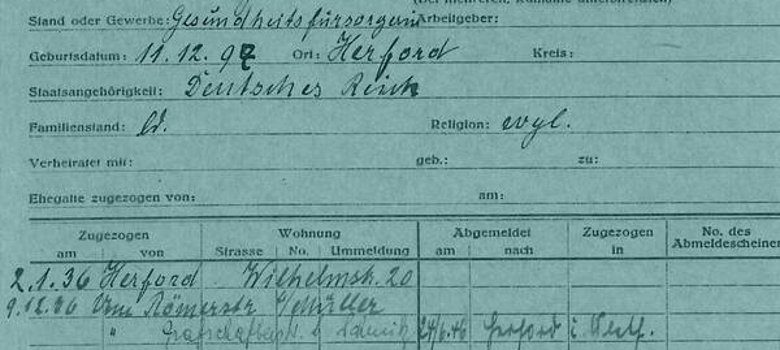 (Bei mehreren, Rufname unterstreichen)
Stand oder Gewerbe: Gesundheitsfürsorgerin Arbeitgeber:
Geburtsdatum: 11.12.97 Ort: Herford Kreis:
Staatsangehörigkeit: Deutsches Reich
Familienstand: ld. Religion: evgl.
Verheiratet mit: geb.: zu:
Ehegatte zugezogen von: am:
Zugezogen Wohnung Abgemeldet Zugezogen No. des
am von Strasse No. Ummeldung am nach in Abmeldescheines
2.1.36 Herford Wilhelmstr. 20
9.12.36 Um Römerstr Müller
" 24/6.46 Herford i. Westf.